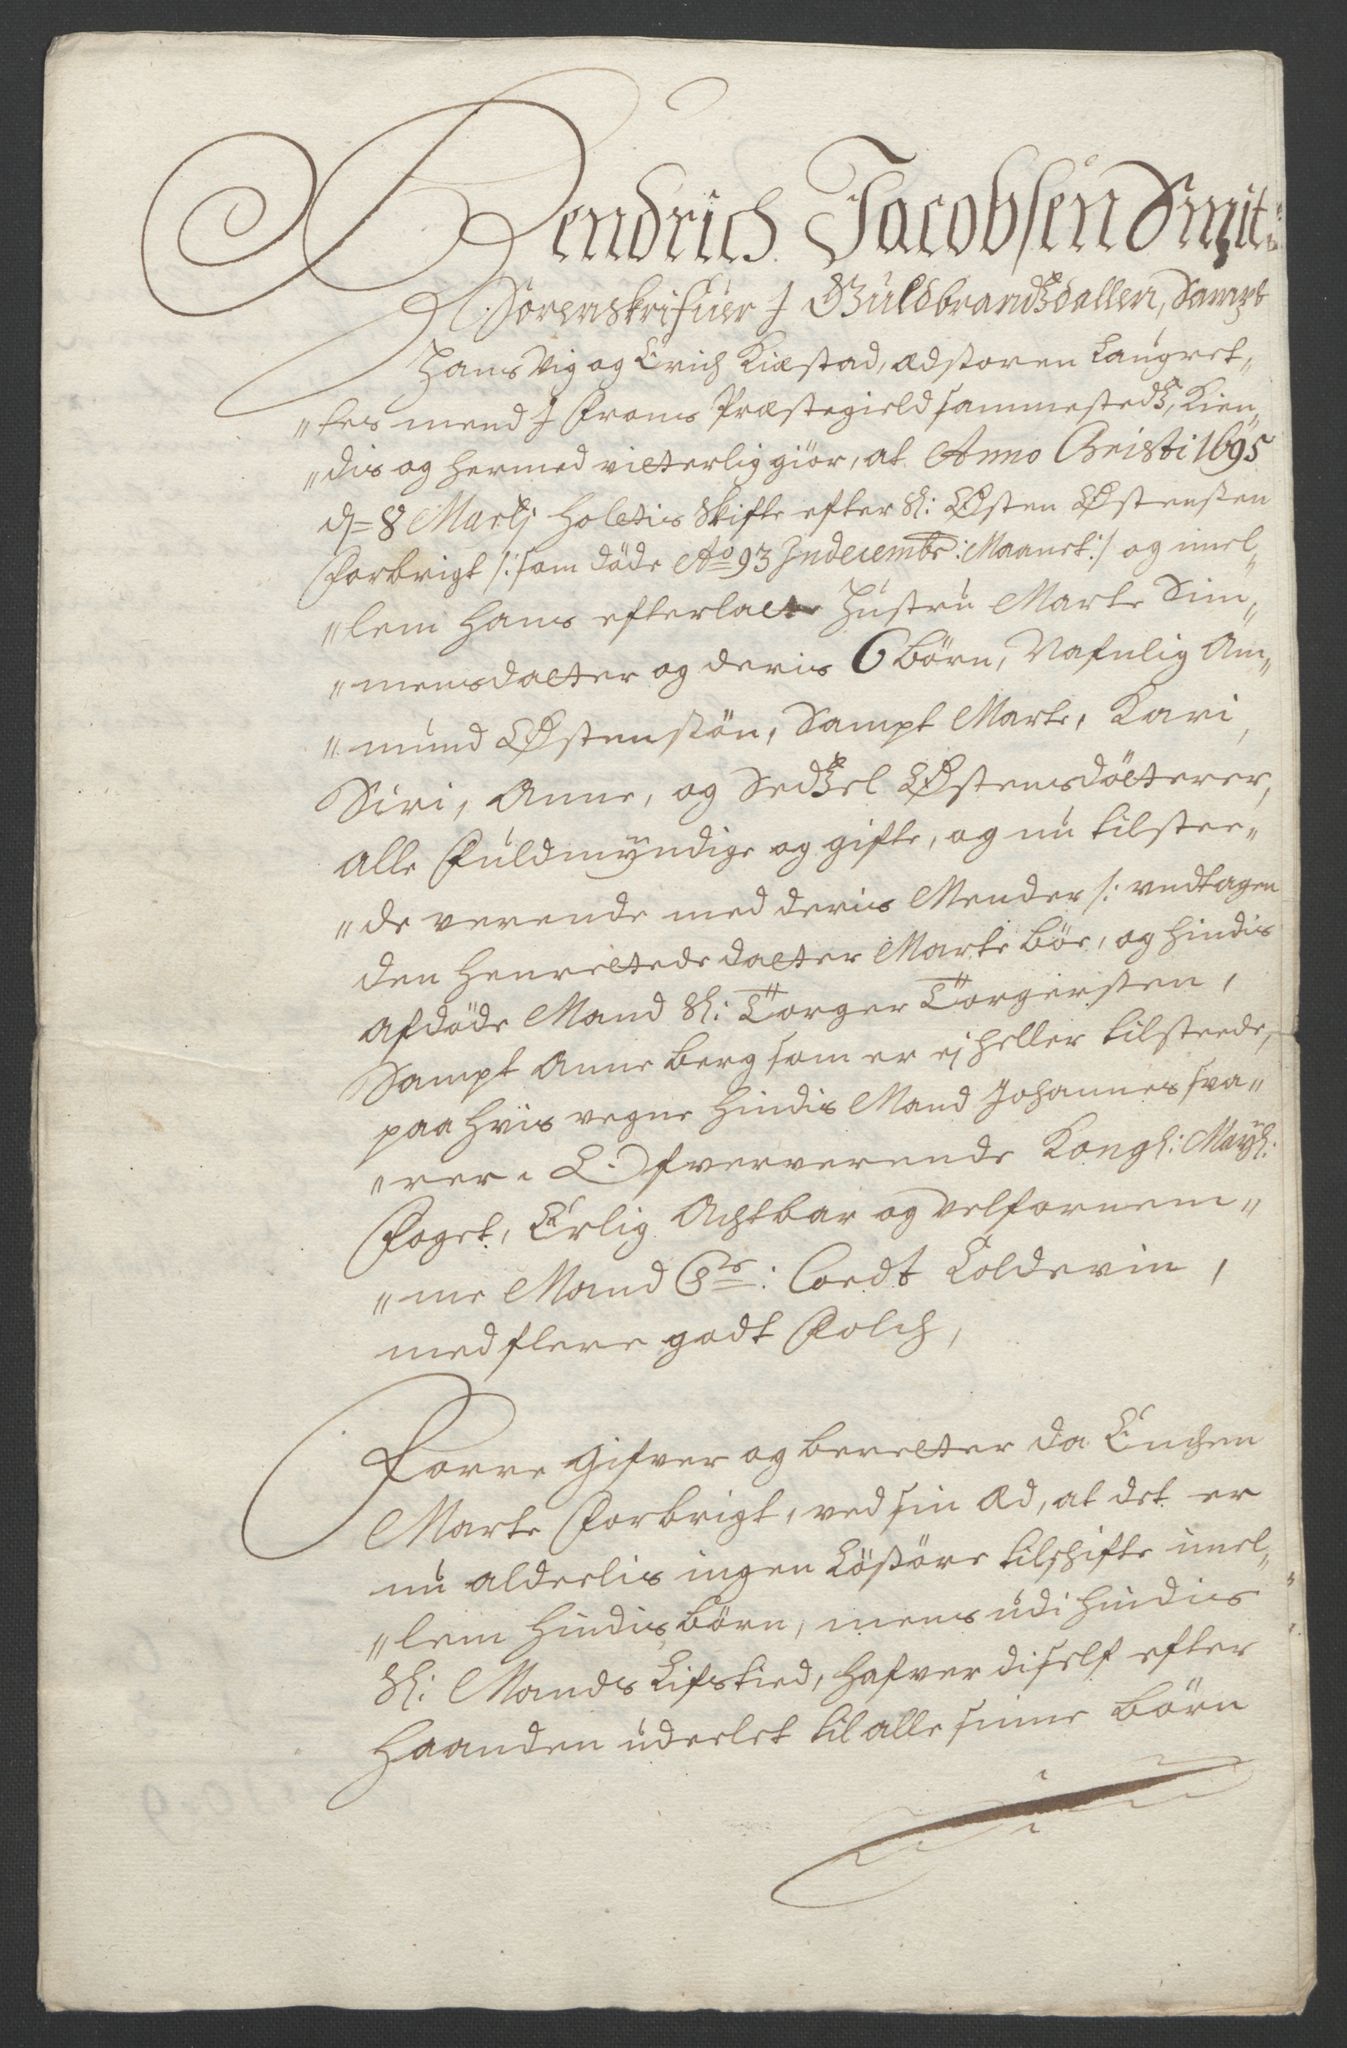 Hendrich Jacobsen Smit
Sorenskrifuer J Guldbrandsdallen, Sampt
Hans Vig og Erich Kiæstad, ædsvoren Laugret„
„tes mend J Froens Præstegield sammesteds, Kien„
„dis og hermed vitterlig giör, at Anno Christi 1695
d= 8 Martj holltis Skifte efter Sl: Østen Østensen
Forbrigt /: som döde Ao 93 Jn decembr: Maanet :/ og imel„
„lem hans efterlatte Hustru Marte Sim„
„mensdatter og deris 6 börn, Nafnlig Am„
„mund Østensön, Sampt Marte, Kari,
Siri, Anne, og Sedzel Østensdötterer,
alle Fuldmyndige og gifte, og nu tilstee„
„de verende med deris Mender /: undtagen
den henrettede datter Marte Böe, og hindis
afdöde Mand Sl: Torger Torgersen,
Sampt Anne berg som er ej heller tilstede,
paa hvis vegne hindis Mand Johannes sva„
„rer. Ofververende Kongl: Mayts:
Foget, Erlig Achtbar og Velfornem„
„me Mand Sr: Cordt Coldevin,
med flere godt Folch,
Forre gifver og beretter da Enchen
Marte Forbrigt, ved sin Æd, at det er
nu alderlis ingen Lösöre til skifte imel„
„lem hindis börn, mens udi hindis
Sl: Mands Lifstied, hafver di self efter
haanden udeelet til alle sinne börn